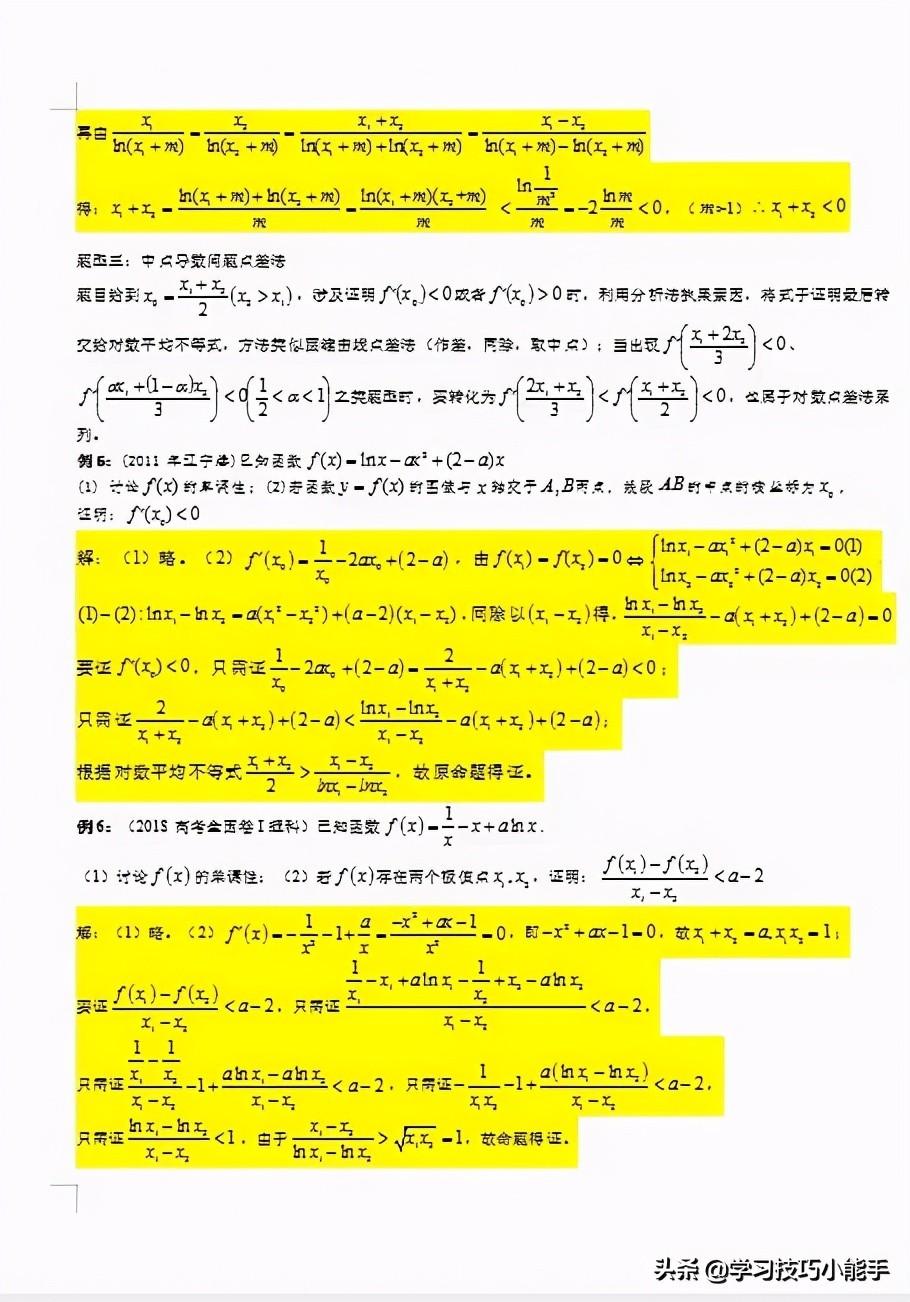 再由 x₁/ln(x₁+m) = x₂/ln(x₂+m) = (x₁+x₂)/(ln(x₁+m)+ln(x₂+m)) = (x₁-x₂)/(ln(x₁+m)-ln(x₂+m))
得：x₁+x₂ = (ln(x₁+m)+ln(x₂+m))/m = ln(x₁+m)(x₂+m)/m < ln(1/m²)/m = -2 lnm/m < 0，（m>1）∴ x₁+x₂ < 0
题型三：中点导数问题点差法
题目给到 x₀ = (x₁+x₂)/2 (x₂ > x₁)，涉及证明 f'(x₀) < 0 或者 f'(x₀) > 0 时，利用分析法执果索因，将式子证明最后转
交给对数平均不等式，方法类似圆锥曲线点差法（作差，同除，取中点）；当出现 f'((x₁+2x₂)/3) < 0、
f'((αx₁+(1-α)x₂)/3) < 0 (1/2 < α < 1) 之类题型时，要转化为 f'((2x₁+x₂)/3) < f'((x₁+x₂)/2) < 0，也属于对数点差法系
列。
例5：(2011 年辽宁 已知函数 f(x) = lnx - ax² + (2-a)x
(1) 讨论 f(x) 的单调性；(2)若函数 y = f(x) 的图像与 x 轴交于 A,B 两点，线段 AB 的中点的横坐标为 x₀，
证明：f'(x₀) < 0
解：（1）略。（2） f'(x₀) = 1/x₀ - 2ax₀ + (2-a)，由 f(x₁) = f(x₂) = 0 ⇔ { lnx₁ - ax₁² + (2-a)x₁ = 0(1)
lnx₂ - ax₂² + (2-a)x₂ = 0(2)
(1)-(2): lnx₁ - lnx₂ = a(x₁²-x₂²) + (a-2)(x₁-x₂)，同除以 (x₁-x₂) 得，(lnx₁-lnx₂)/(x₁-x₂) - a(x₁+x₂) + (2-a) = 0
要证 f'(x₀) < 0，只需证 1/x₀ - 2ax₀ + (2-a) = 2/(x₁+x₂) - a(x₁+x₂) + (2-a) < 0；
只需证 2/(x₁+x₂) - a(x₁+x₂) + (2-a) < (lnx₁-lnx₂)/(x₁-x₂) - a(x₁+x₂) + (2-a)；
根据对数平均不等式 (x₁+x₂)/2 > (x₁-x₂)/(lnx₁-lnx₂)，故原命题得证。
例6：（2018 高考全国卷 I 理科）已知函数 f(x) = 1/x - x + alnx.
（1）讨论 f(x) 的单调性；（2）若 f(x) 存在两个极值点 x₁,x₂，证明：(f(x₁)-f(x₂))/(x₁-x₂) < a-2
解：（1）略。（2） f'(x) = -1/x² - 1 + a/x = (-x²+ax-1)/x² = 0，即 -x²+ax-1 = 0，故 x₁+x₂ = a,x₁x₂ = 1；
要证 (f(x₁)-f(x₂))/(x₁-x₂) < a-2，只需证 (1/x₁ - x₁ + alnx₁ - 1/x₂ + x₂ - alnx₂)/(x₁-x₂) < a-2，
只需证 (1/x₁ - 1/x₂)/(x₁-x₂) - 1 + (alnx₁-alnx₂)/(x₁-x₂) < a-2，只需证 -1/(x₁x₂) - 1 + a(lnx₁-lnx₂)/(x₁-x₂) < a-2，
只需证 (lnx₁-lnx₂)/(x₁-x₂) < 1，由于 (x₁-x₂)/(lnx₁-lnx₂) > √(x₁x₂) = 1，故命题得证。
头条 @学习技巧小能手